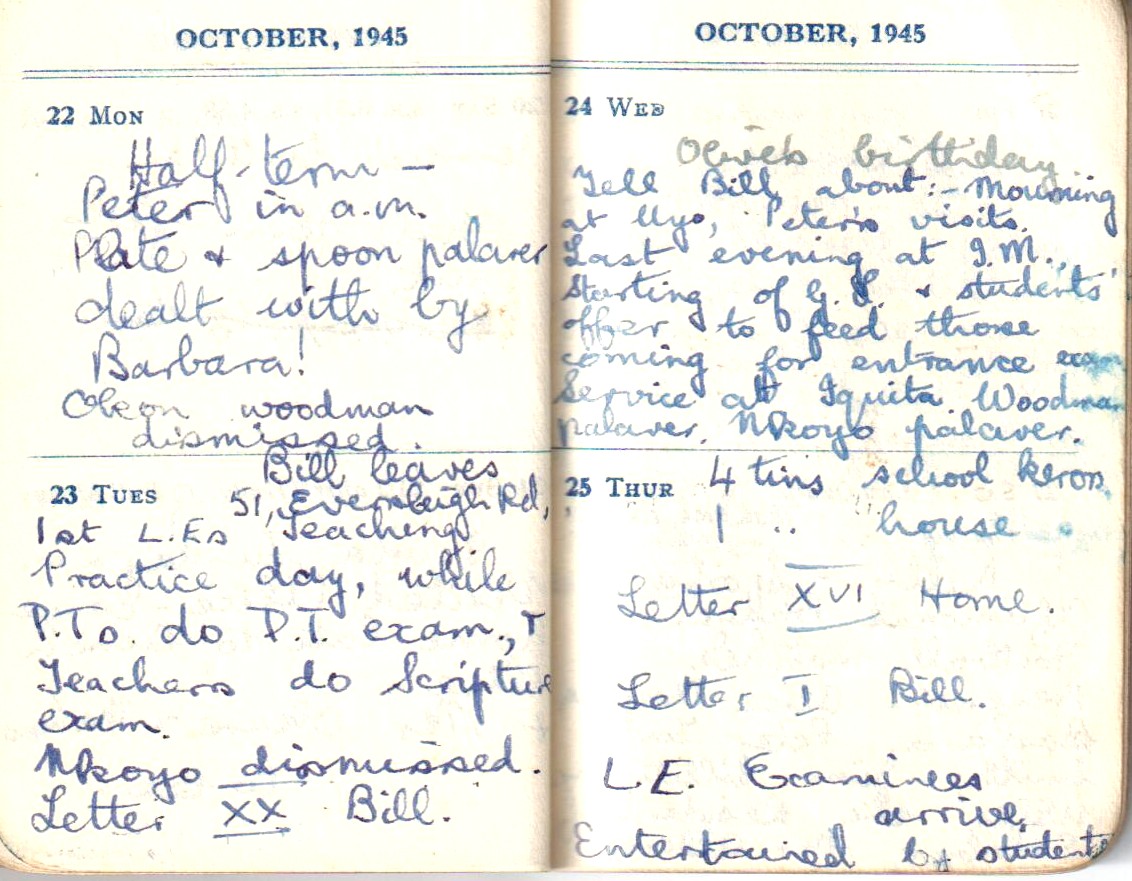 OCTOBER, 1945
22 MON
Half-term –
Peter in a.m.
Plate & spoon palaver
dealt with by
Barbara!
woodman
dismissed.
Bill leaves
23 TUES
51, Eversleigh Rd,
1st L.Es Teaching
Practice day, while
P.Ts. do P.T. exam.,
Teachers do Scripture
exam.
Nkoyo dismissed.
Letter XX Bill.
OCTOBER, 1945
24 WED
Olive's birthday
Tell Bill about:- Mourning
at Uyo, Peter's visits.
Last evening at I.M.,
Starting of G.L. & students'
offer to feed those
coming for entrance exam
Service at Iquita. Woodman
palaver. Nkoyo palaver.
25 THUR
4 tins school keros.
1 .. house
Letter XVI Home.
Letter I Bill.
L.E. Examinees
arrive.
Entertained by students